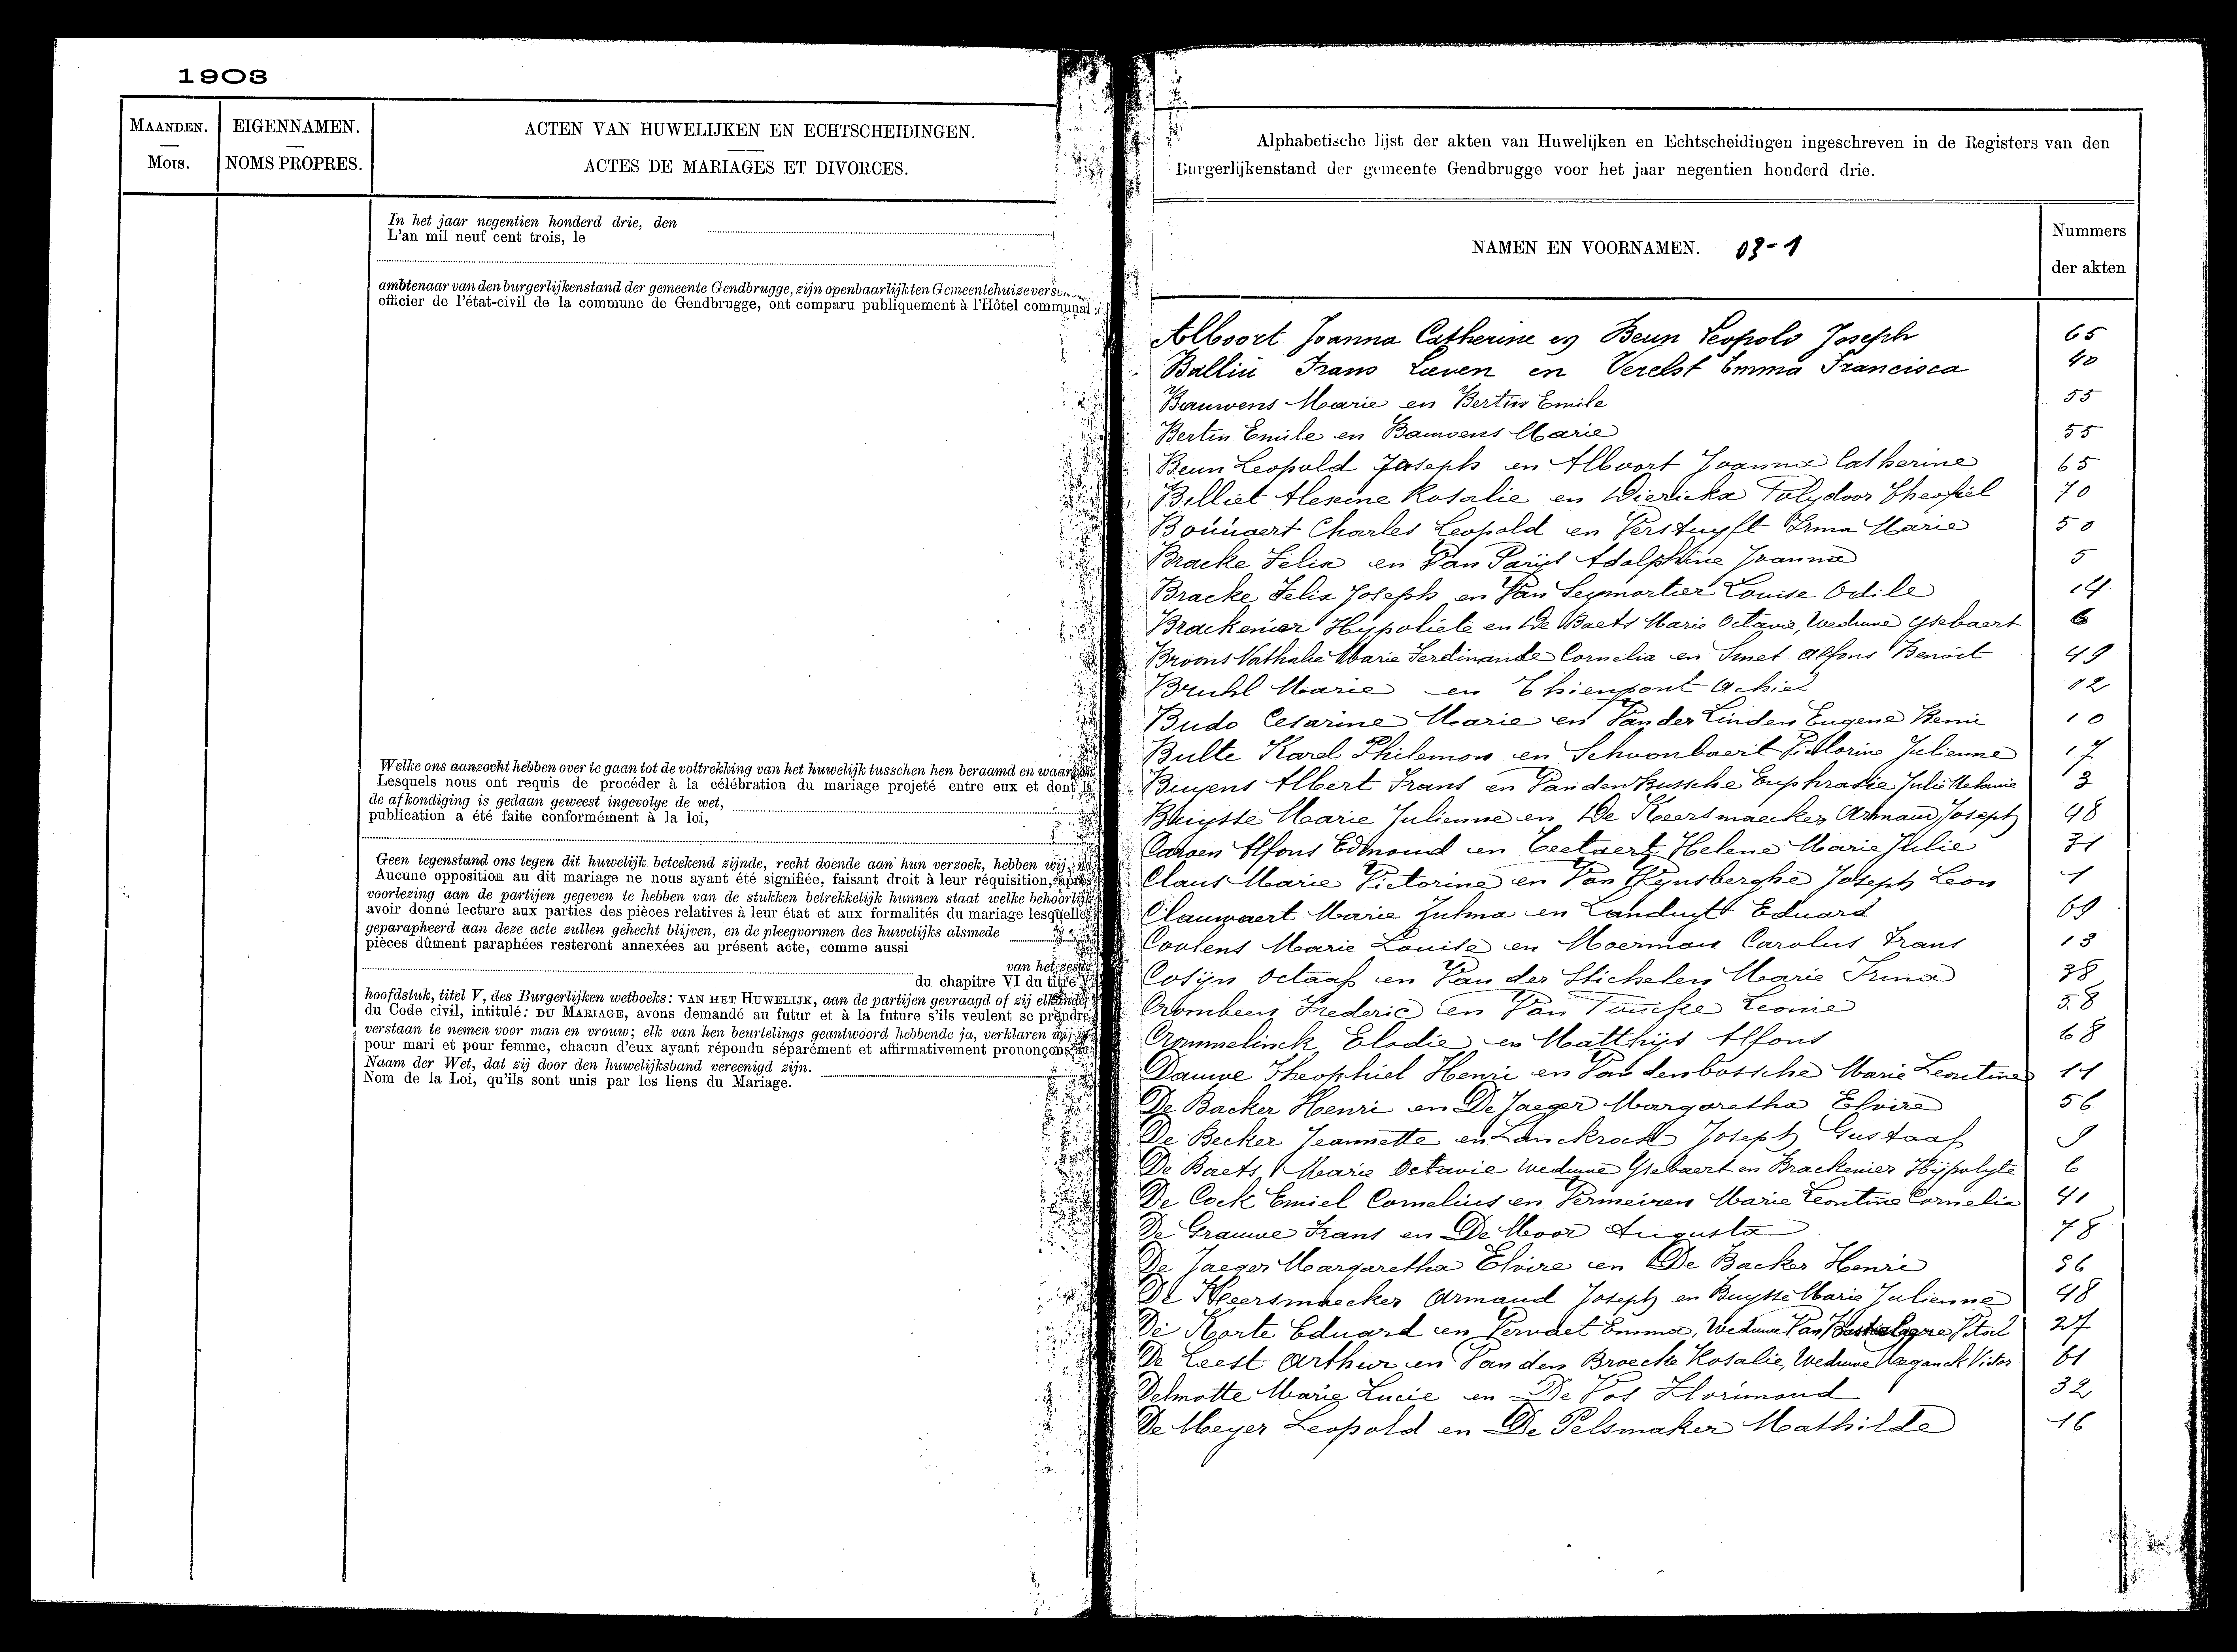 1903
MAANDEN.
Mois.
EIGENNAMEN.
NOMS PROPRES.
ACTEN VAN HUWELIJKEN EN ECHTSCHEIDINGEN.
ACTES DE MARIAGES ET DIVORCES.
In het jaar negentien honderd drie, den
L'an mil neuf cent trois, le
ambtenaar van den burgerlijkenstand der gemeente Gendbrugge, zijn openbaarlijk ten Gemeentehuize
officier de l'état-civil de la commune de Gendbrugge, ont comparu publiquement à l'Hôtel communal
Welke ons aanzocht hebben over te gaan tot de voltrekking van het huwelijk tusschen hen beraamd en
Lesquels nous ont requis de procéder à la célébration du mariage projeté entre eux et dont la
de afkondiging is gedaan geweest ingevolge de wet,
publication a été faite conformément à la loi,
Geen tegenstand ons tegen dit huwelijk beteekend zijnde, recht doende aan hun verzoek, hebben wij, na
Aucune opposition au dit mariage ne nous ayant été signifiée, faisant droit à leur réquisition, après
voorlezing aan de partijen gegeven te hebben van de stukken betrekkelijk hunnen staat welke behoorlijk
avoir donné lecture aux parties des pièces relatives à leur état et aux formalités du mariage lesquelles
geparapheerd aan deze acte zullen gehecht blijven, en de pleegvormen des huwelijks alsmede
pièces dûment paraphées resteront annexées au présent acte, comme aussi
van het zesde
du chapitre VI du titre V
hoofdstuk, titel V, des Burgerlijken wetboeks: VAN HET HUWELIJK, aan de partijen gevraagd of zij elkander
du Code civil, intitulé: DU MARIAGE, avons demandé au futur et à la future s'ils veulent se prendre
verstaan te nemen voor man en vrouw; elk van hen beurtelings geantwoord hebbende ja, verklaren wij in
pour mari et pour femme, chacun d'eux ayant répondu séparément et affirmativement prononçons au
Naam der Wet, dat zij door den huwelijksband vereenigd zijn.
Nom de la Loi, qu'ils sont unis par les liens du Mariage.
Alphabetische lijst der akten van Huwelijken en Echtscheidingen ingeschreven in de Registers van den
Burgerlijkenstand der gemeente Gendbrugge voor het jaar negentien honderd drie.
NAMEN EN VOORNAMEN. 03-1
Nummers
der akten
Alboort Joanna Catherine en Beun Leopold Joseph 65
Balliu Frans Lieven en Verelst Emma Francisca 40
Bauwens Marie en Bertin Emile 55
Bertin Emile en Bauwens Marie 55
Beun Leopold Joseph en Alboort Joanna Catherine 65
Billiet Alexine Rosalie en Wierickx Polydoor Theofiel 70
Bouuaert Charles Leopold en Verstuyft Irma Marie 50
Bracke Felix en Van Parijs Adolphine Joanna 5
Bracke Felix Joseph en Van Seymortier Louise Odile 14
Brackenier Hypoliete en De Baets Marie Octavie, Weduwe Ysebaert 6
Broons Nathalie Marie Ferdinande Cornelia en Smet Alfons Benoit 49
Bruhl Marie en Thienpont Achiel 12
Budo Cesarine Marie en Van der Linden Eugene Remi 10
Bulte Karel Philemon en Schoonbaert Victorine Julienne 17
Buyens Albert Frans en Vandenbussche Euphrasie Julie Melanie 3
Buijsse Marie Julienne en De Keersmaecker Armand Joseph 48
Alfons Edmond en Helene Marie Julie 31
Claus Marie Victorine en Van Joseph Leon 1
Clauwaert Marie Zulma en Landuyt Eduard 69
Coolens Marie Louise en Moerman Carolus Frans 13
Cosijn Octaaf en Van der Stichelen Marie Irma 38
Crombeen Frederic en Van Leonie 58
Crommelinck Elodie en Matthijs Alfons 68
Dauwe Theophiel Henri en Van den bossche Marie Leontine 11
De Backer Henri en De Jaeger Margaretha Elvire 56
De Becker Jeannette en Lanckrock Joseph Gustaaf 9
De Baets Marie Octavie Weduwe Ysebaert en Brackenier Hijpolyte 6
De Cock Emiel Cornelius en Vermeiren Marie Leontine Cornelia 41
De Grauwe Frans en De Moor Augusta 78
De Jaeger Margaretha Elvire en De Backer Henri 56
De Keersmaecker Armand Joseph en Buysse Marie Julienne 48
De Korte Eduard en Vervaet Emma, Weduwe Van 27
De Leest Arthur en Van den Broecke Rosalie, Weduwe Haeganck Victor 61
Delmotte Marie Lucie en De Vos Florimond 32
De Meyer Leopold en De Pelsmaker Mathilde 16